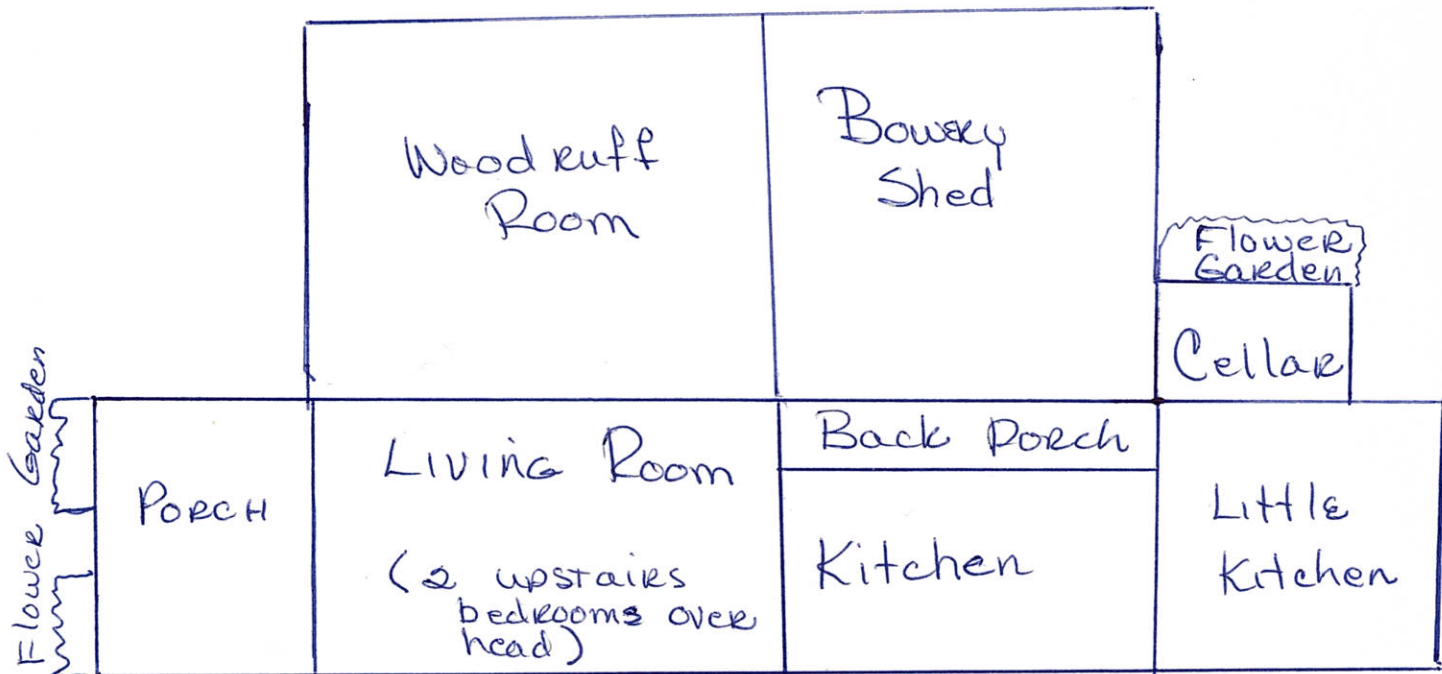 Woodruff
Room
Bowery
Shed
Flower
Garden
Cellar
Flower Garden
Porch
Living Room
(2 upstairs
bedrooms over
head)
Back Porch
Kitchen
Little
Kitchen